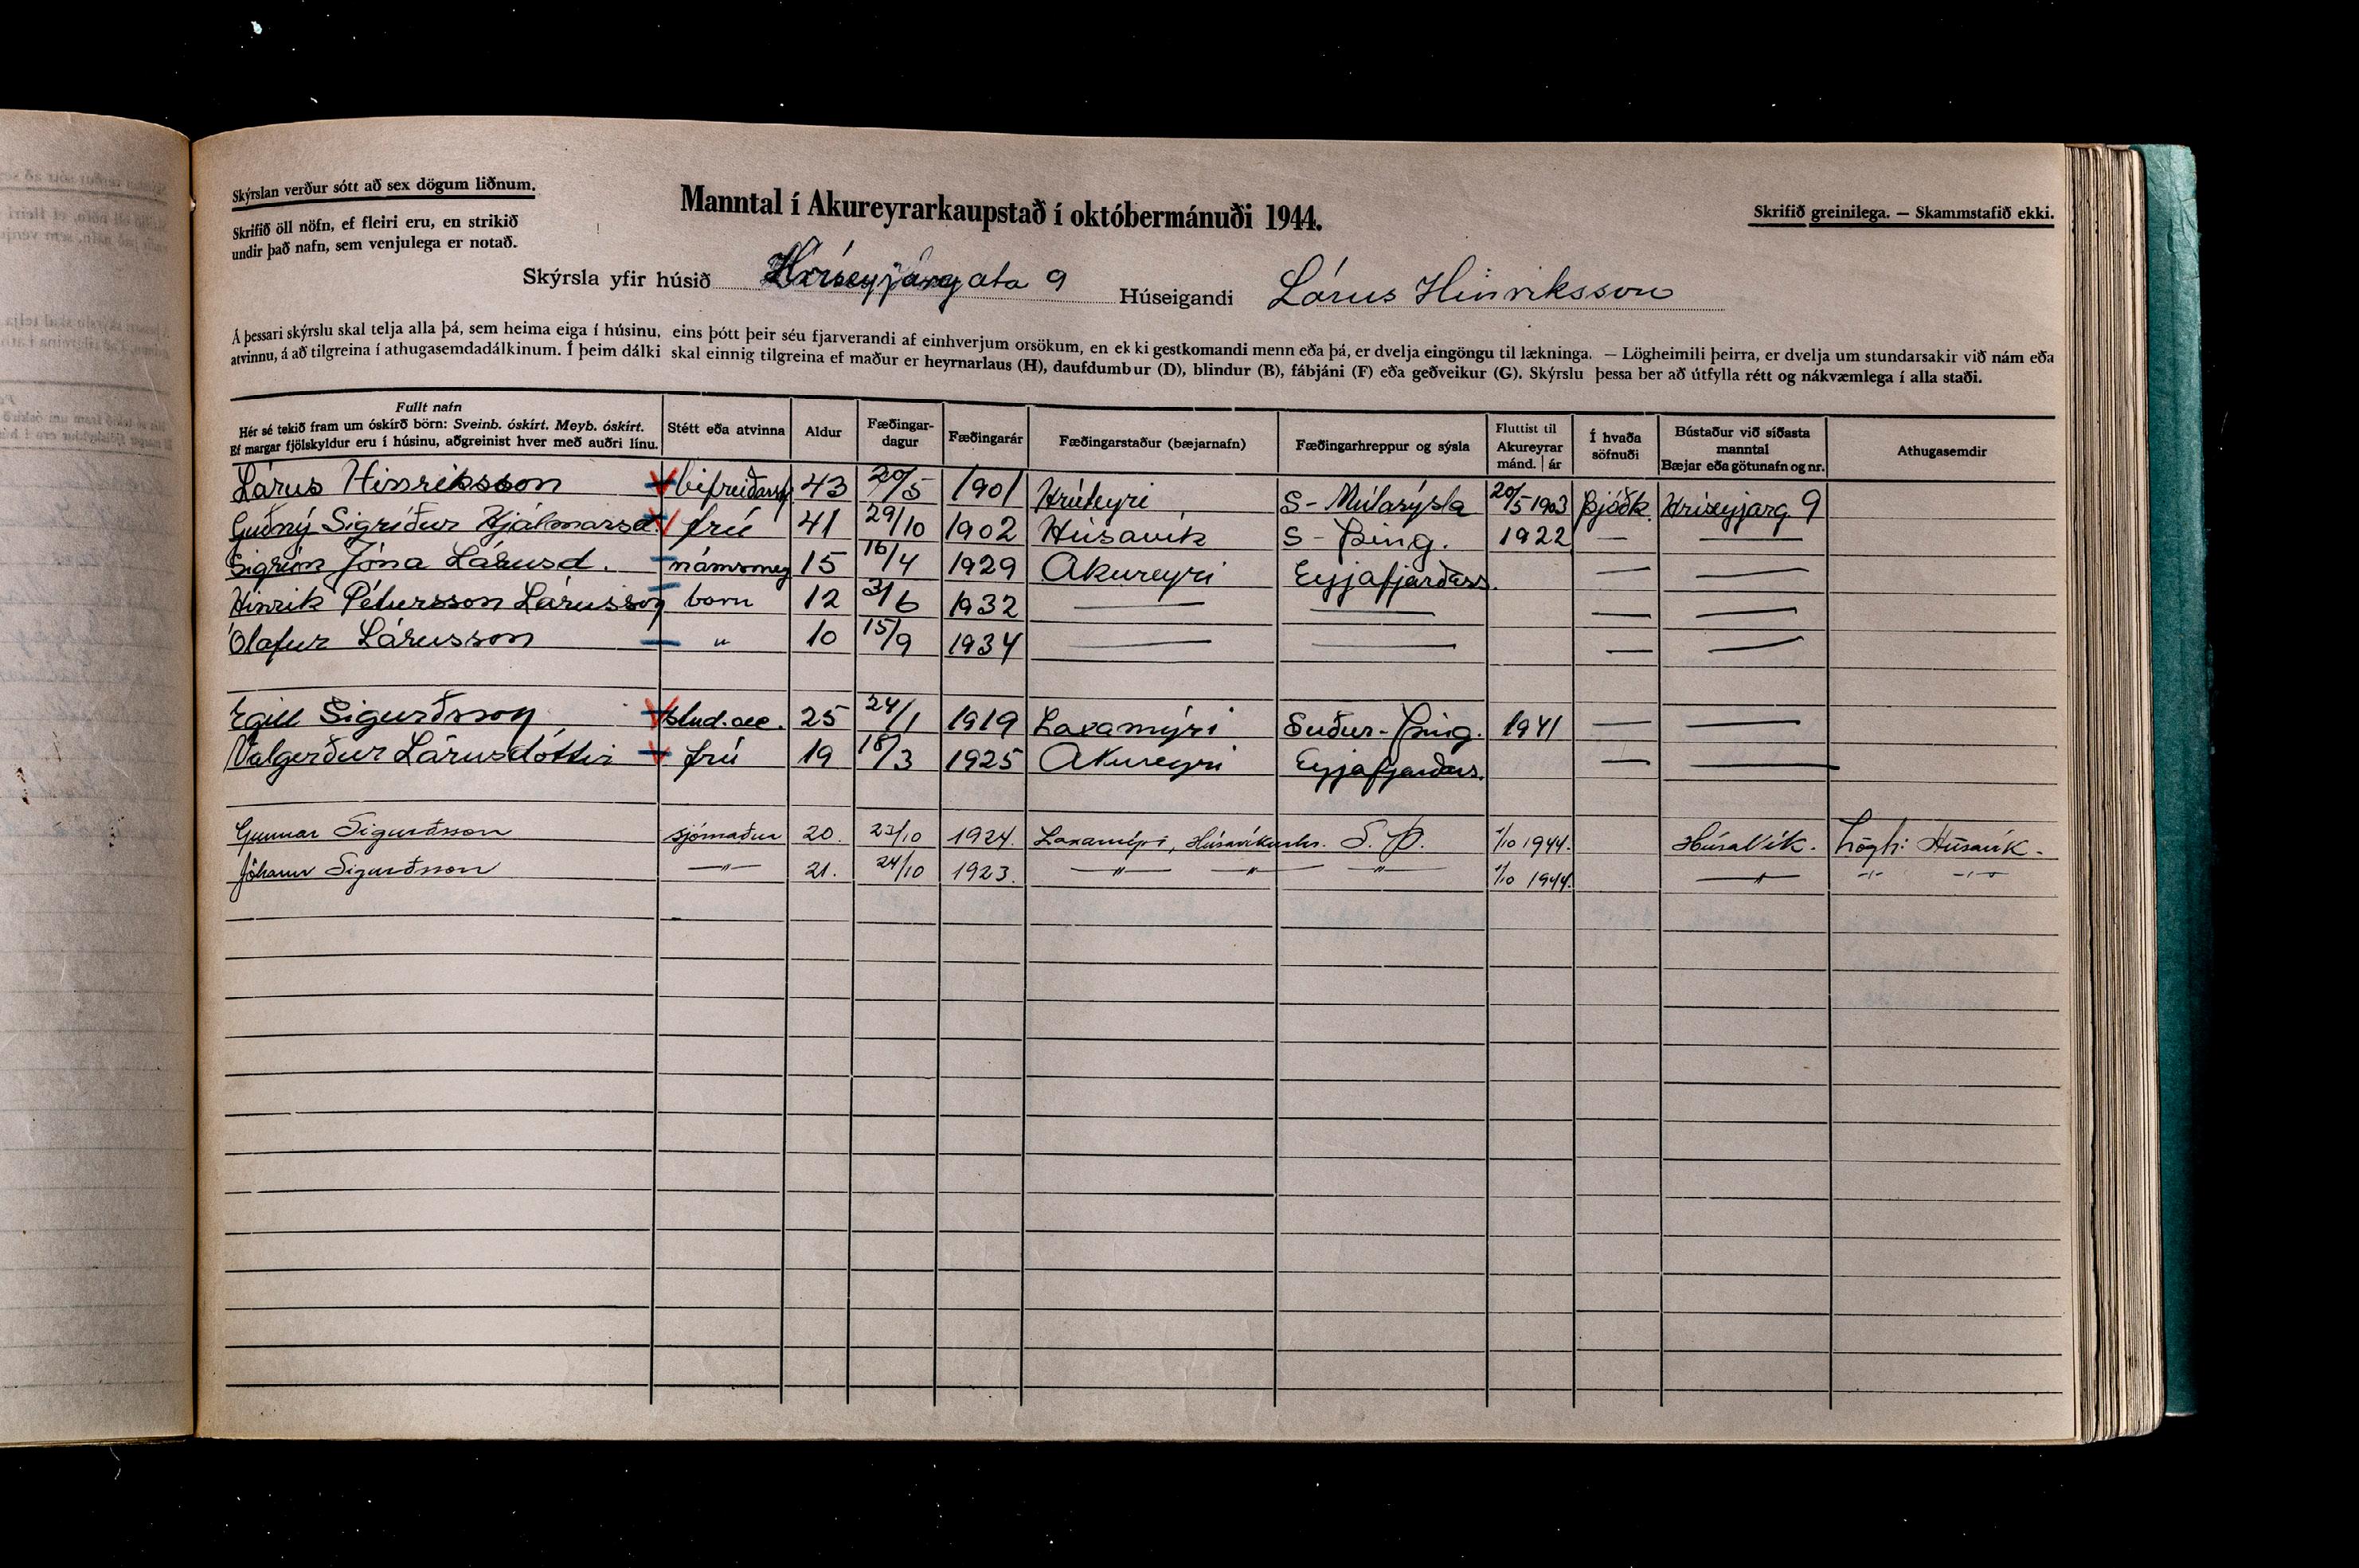 Skýrslan verður sótt að sex dögum liðnum.
Skrifið öll nöfn, ef fleiri eru, en strikið
undir það nafn, sem venjulega er notað.
Manntal í Akureyrarkaupstað í októbermánuði 1944.
Skrifið greinilega. — Skammstafið ekki.
Skýrsla yfir húsið Hríseyjargata 9 Húseigandi Lárus Hinriksson
Á þessari skýrslu skal telja alla þá, sem heima eiga í húsinu, eins þótt þeir séu fjarverandi af einhverjum orsökum, en ekki gestkomandi menn eða þá, er dvelja eingöngu til lækninga. — Lögheimili þeirra, er dvelja um stundarsakir við nám eða
atvinnu, á að tilgreina í athugasemdadálkinum. Í þeim dálki skal einnig tilgreina ef maður er heyrnarlaus (H), daufdumbur (D), blindur (B), fábjáni (F) eða geðveikur (G). Skýrslu þessa ber að útfylla rétt og nákvæmlega í alla staði.
Fullt nafn
Hér sé tekið fram um óskírð börn: Sveinb. óskírt. Meyb. óskírt.
Ef margar fjölskyldur eru í húsinu, aðgreinist hver með auðri línu.
Stétt eða atvinna
Aldur
Fæðingar-
dagur
Fæðingarár
Fæðingarstaður (bæjarnafn)
Fæðingarhreppur og sýsla
Fluttist til
Akureyrar
mánd. | ár
Í hvaða
söfnuði
Bústaður við síðasta
manntal
Bæjar eða götunafn og nr.
Athugasemdir
Lárus Hinriksson bifreiðarstj 43 20/5 1901 Hrúteyri S-Múlasýsla 20/5 1903 Þjóðk. Hríseyjarg 9
Guðný Sigríður Hjálmarsd. frú 41 29/10 1902 Húsavík S-Þing. 1922 — —
Sigrún Jóna Lárusd. námsmey 15 16/4 1929 Akureyri Eyjafjarðars. — —
Hinrik Pétursson Lárusson barn 12 3/6 1932 — — — —
Ólafur Lárusson " 10 15/9 1934 — — — —
Egill Sigurðsson stud.oec. 25 24/1 1919 Laxamýri Suður-Þing. 1941 — —
Valgerður Lárusdóttir frú 19 18/3 1925 Akureyri Eyjafjarðars. — —
Gunnar Sigurðsson sjómaður 20. 23/10 1924. Laxamýri, Húsavíkurhr. S.Þ. 1/10 1944. Húsavík. Lögh: Húsavík.
Jóhann Sigurðsson —"— 21. 24/10 1923. —"— —"— —"— 1/10 1944. —"— —"— —"—